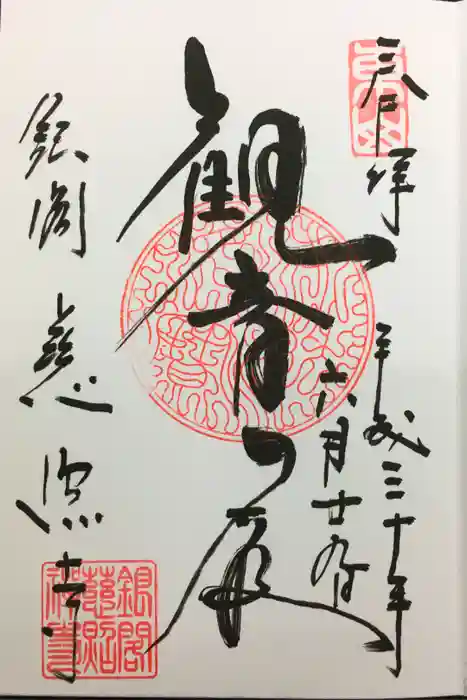 奉拝
平成三十年
六月廿九日
観音殿
銀閣 慈照寺
銀閣慈照禅寺